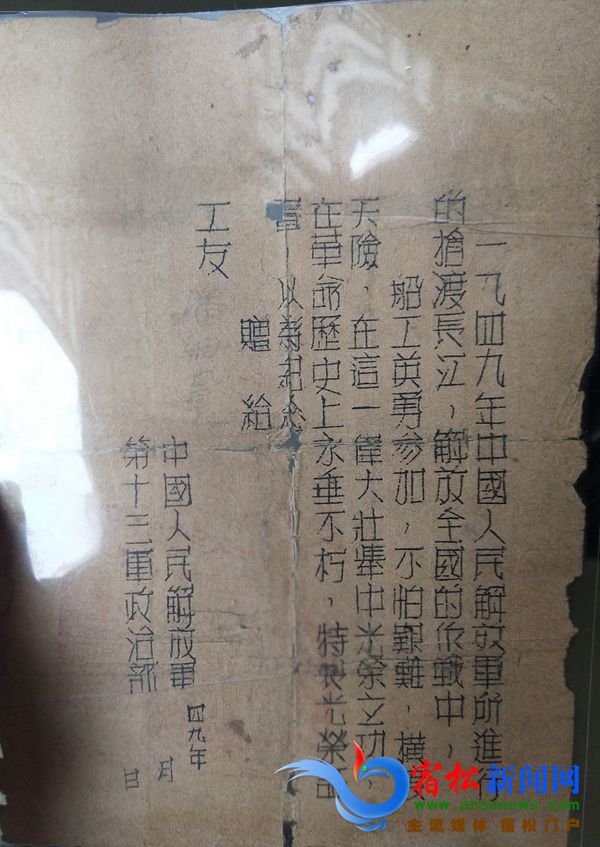 一九四九年中國人民解放軍所進行
的搶渡長江，解放全國的作戰中，
船工英勇参加，不怕艱難，橫渡
天險，在這一偉大壯舉中光榮立功，
在革命歷史上永垂不朽，特製光榮証
書 以 紀念
贈給
工友
中國人民解放軍
第十三軍政治部
四九年 月 日
宿松新闻网
www.ahssnews.com
主流媒体 宿松门户